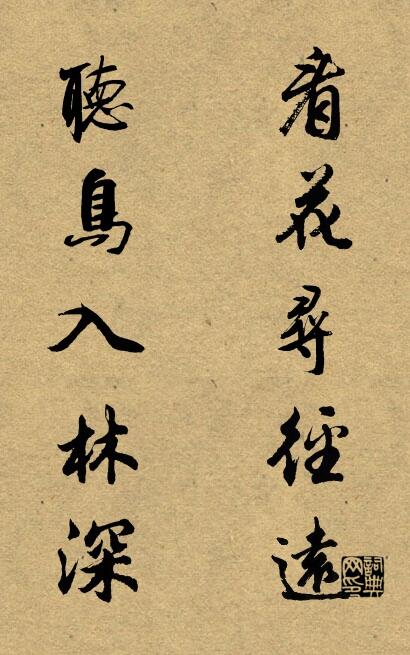 看花尋徑遠
聽鳥入林深
詞典網印